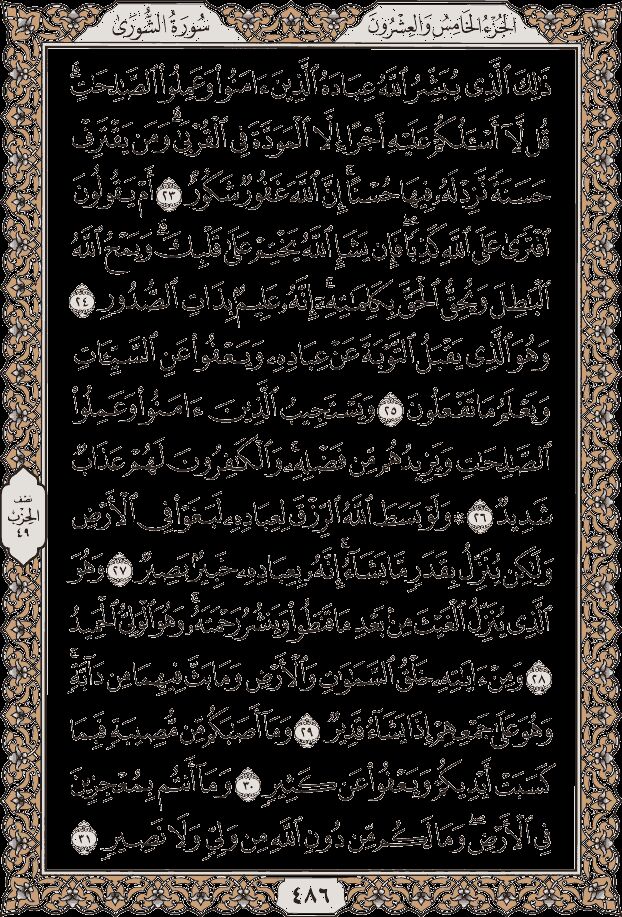 سُورَةُ الشُّورَىٰ
الجُزْءُ الخَامِسُ وَالعِشْرُونَ
ذَٰلِكَ ٱلَّذِى يُبَشِّرُ ٱللَّهُ عِبَادَهُ ٱلَّذِينَ ءَامَنُوا۟ وَعَمِلُوا۟ ٱلصَّـٰلِحَـٰتِ ۗ
قُل لَّآ أَسْـَٔلُكُمْ عَلَيْهِ أَجْرًا إِلَّا ٱلْمَوَدَّةَ فِى ٱلْقُرْبَىٰ ۗ وَمَن يَقْتَرِفْ
حَسَنَةً نَّزِدْ لَهُۥ فِيهَا حُسْنًا ۚ إِنَّ ٱللَّهَ غَفُورٌ شَكُورٌ ٢٣ أَمْ يَقُولُونَ
ٱفْتَرَىٰ عَلَى ٱللَّهِ كَذِبًا ۖ فَإِن يَشَإِ ٱللَّهُ يَخْتِمْ عَلَىٰ قَلْبِكَ ۗ وَيَمْحُ ٱللَّهُ
ٱلْبَـٰطِلَ وَيُحِقُّ ٱلْحَقَّ بِكَلِمَـٰتِهِۦٓ ۚ إِنَّهُۥ عَلِيمٌۢ بِذَاتِ ٱلصُّدُورِ ٢٤
وَهُوَ ٱلَّذِى يَقْبَلُ ٱلتَّوْبَةَ عَنْ عِبَادِهِۦ وَيَعْفُوا۟ عَنِ ٱلسَّيِّـَٔاتِ
وَيَعْلَمُ مَا تَفْعَلُونَ ٢٥ وَيَسْتَجِيبُ ٱلَّذِينَ ءَامَنُوا۟ وَعَمِلُوا۟
ٱلصَّـٰلِحَـٰتِ وَيَزِيدُهُم مِّن فَضْلِهِۦ ۚ وَٱلْكَـٰفِرُونَ لَهُمْ عَذَابٌ
شَدِيدٌ ٢٦ ۞ وَلَوْ بَسَطَ ٱللَّهُ ٱلرِّزْقَ لِعِبَادِهِۦ لَبَغَوْا۟ فِى ٱلْأَرْضِ
وَلَـٰكِن يُنَزِّلُ بِقَدَرٍ مَّا يَشَآءُ ۚ إِنَّهُۥ بِعِبَادِهِۦ خَبِيرٌۢ بَصِيرٌ ٢٧ وَهُوَ
ٱلَّذِى يُنَزِّلُ ٱلْغَيْثَ مِنۢ بَعْدِ مَا قَنَطُوا۟ وَيَنشُرُ رَحْمَتَهُۥ ۚ وَهُوَ ٱلْوَلِىُّ ٱلْحَمِيدُ
٢٨ وَمِنْ ءَايَـٰتِهِۦ خَلْقُ ٱلسَّمَـٰوَٰتِ وَٱلْأَرْضِ وَمَا بَثَّ فِيهِمَا مِن دَآبَّةٍ ۚ
وَهُوَ عَلَىٰ جَمْعِهِمْ إِذَا يَشَآءُ قَدِيرٌ ٢٩ وَمَآ أَصَـٰبَكُم مِّن مُّصِيبَةٍ فَبِمَا
كَسَبَتْ أَيْدِيكُمْ وَيَعْفُوا۟ عَن كَثِيرٍ ٣٠ وَمَآ أَنتُم بِمُعْجِزِينَ
فِى ٱلْأَرْضِ ۖ وَمَا لَكُم مِّن دُونِ ٱللَّهِ مِن وَلِىٍّ وَلَا نَصِيرٍ ٣١
نصف
الحزب
٤٩
٤٨٦